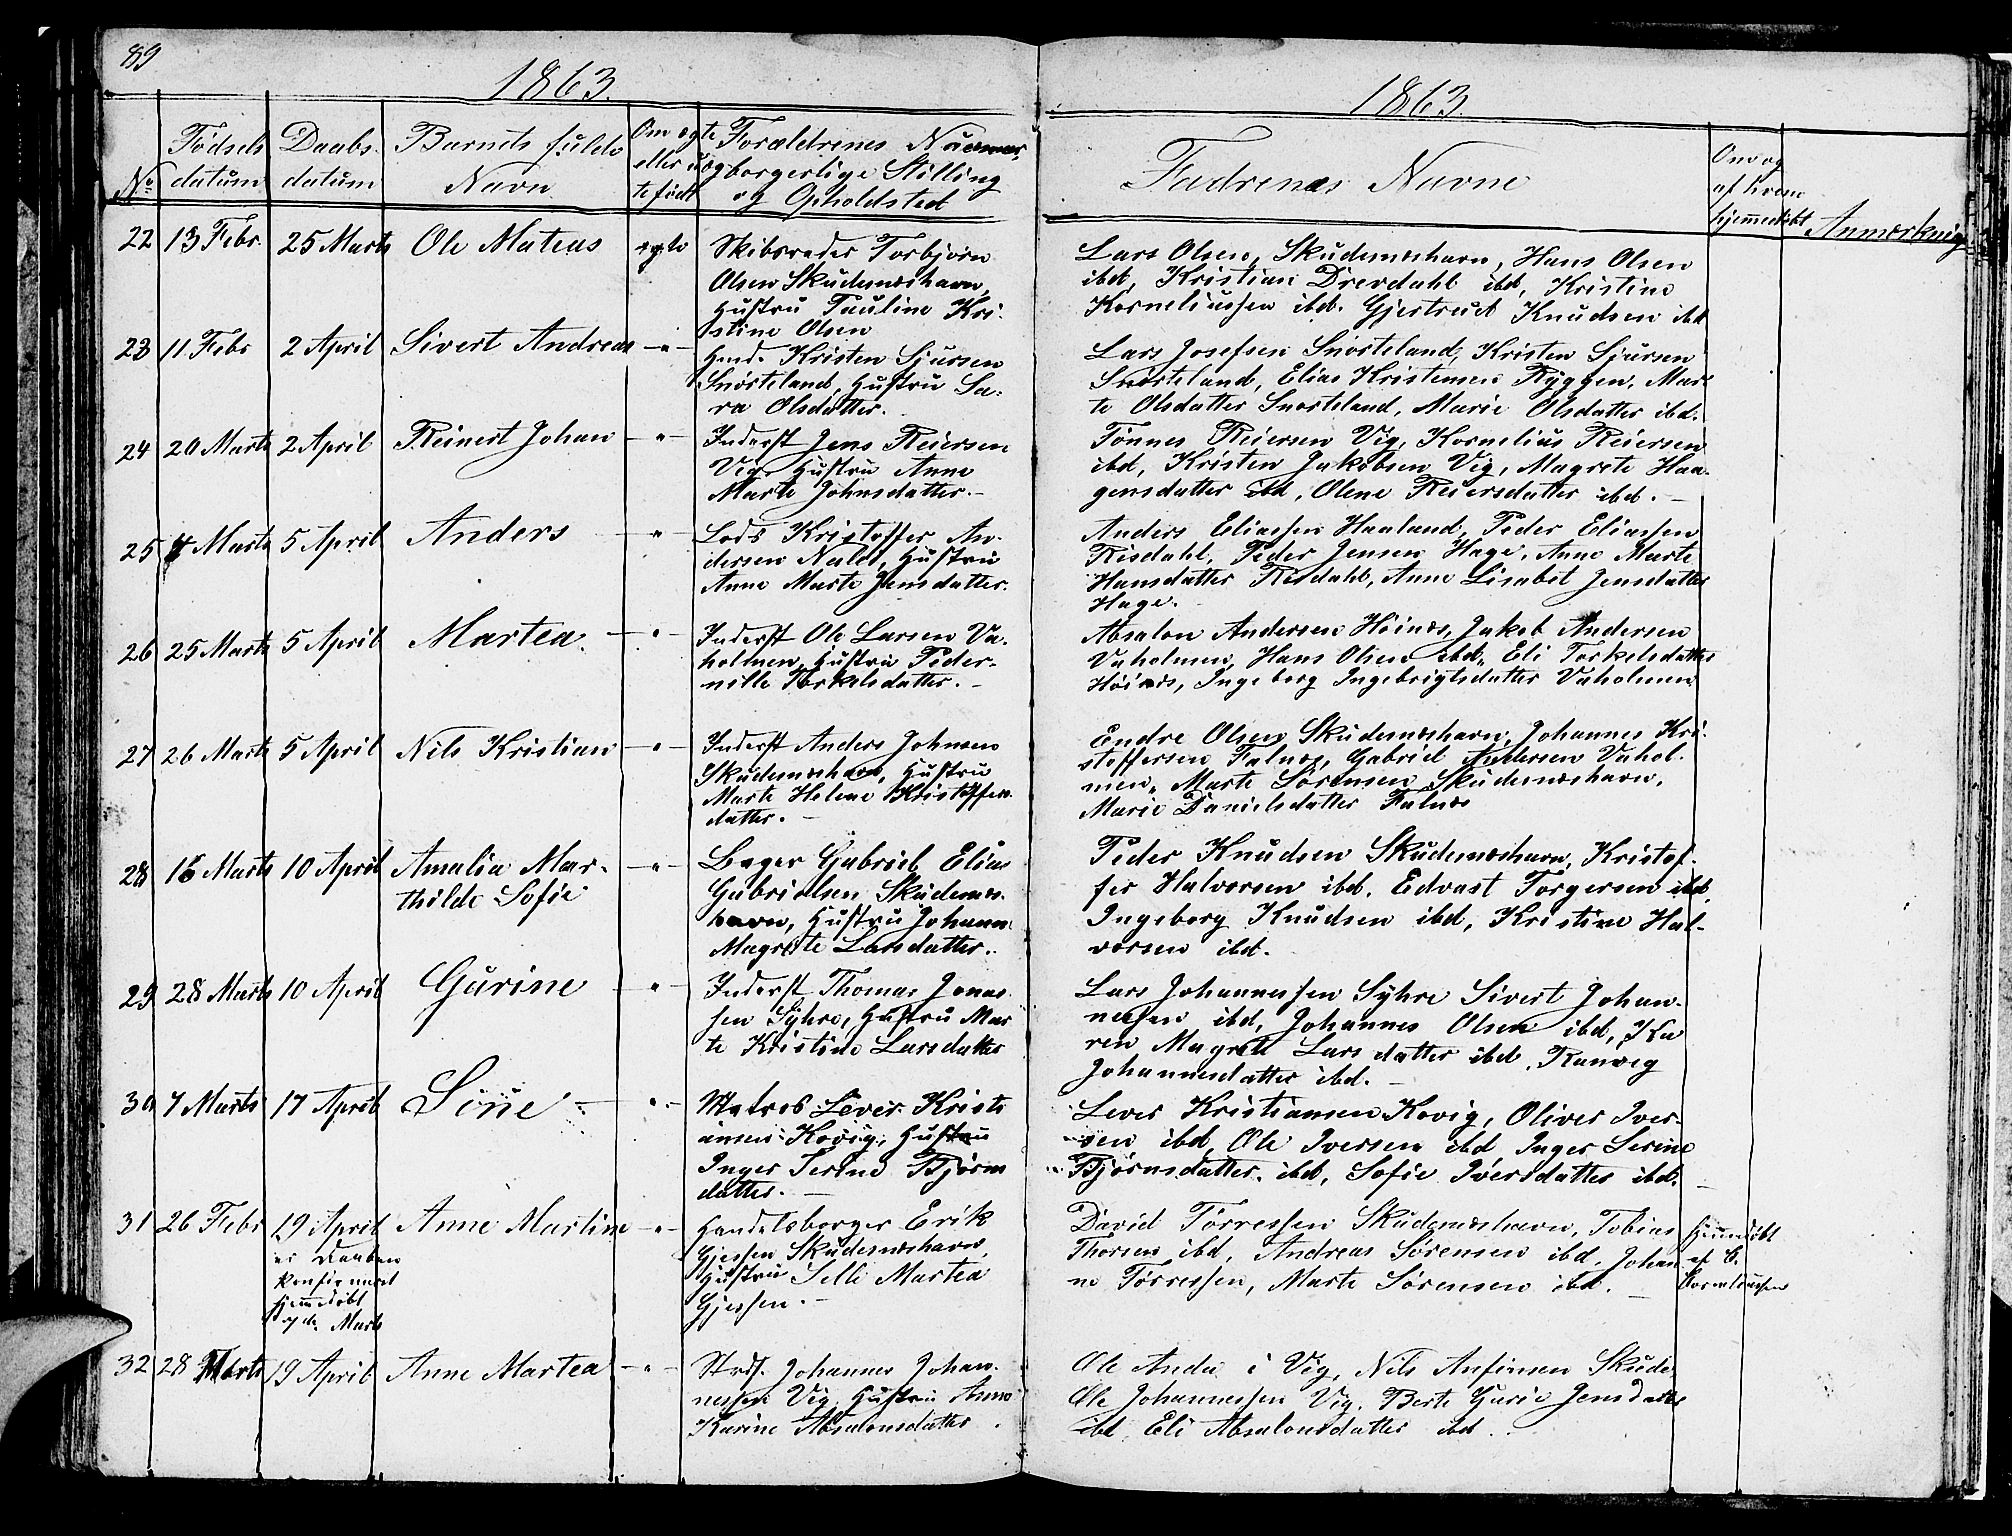 89
1863.
1863.
No
Fødsels
datum
Daabs
datum
Barnets fulde
Navn
Om ægte
eller uæg
te født
Forældrenes Navne,
borgerlige Stilling
og Opholdsted
Fadrenes Navne
Om og
af hvem
hjemmedøbt
Anmærkning
22 13 Febr. 25 Marts Ole Mateas ægte
Skibsreder Torbjørn
Olsen Skudesneshavn,
Hustru Pauline Kri-
stine Olsen
Lars Olsen, Skudesneshavn, Hans Olsen
ibd, Kristian Drevdahl ibd, Kristine
Korneliussen ibd. Gjertrud Knudsen ibd
23 11 Febr 2 April Sivert Andreas -"-
Hmd. Kristen Sjursen
Snørteland, Hustru Sa-
ra Olsdatter.
Lars Josefsen Snørteland, Kristen Sjursen
Snørteland, Elias Kristensen Ryggen, Mar-
te Olsdatter Snørteland, Marie Olsdatter ibd.
24 20 Marts 2 April Reinert Johan -"-
Inderst Jens Reiersen
Vig, Hustru Anne
Marte Johnsdatter.-
Tønnes Reiersen Vig, Kornelius Reiersen
ibd, Kristen Jakobsen Vig, Magrete Haa-
gensdatter ibd, Olene Reiersdatter ibd.-
25 4 Marts 5 April Anders -"-
Lods Kristoffer An-
dersen Naley, Hustru
Anne Marte Jensdatter.
Anders Eliassen Haaland, Peder Eliassen
Risdahl, Peder Jensen Hage, Anne Marte
Hansdatter Risdahl, Anne Lisabet Jensdatter
Hage.
26 25 Marts 5 April Martea. -"-
Inderst Ole Larsen Va-
holmen, Hustru Peder-
nille Torkelsdatter.-
Absalon Andersen Høines, Jakob Andersen
Vaholmen, Hans Olsen ibd, Eli Torkelsdatter
Høines, Ingeborg Ingebrigtsdatter Vaholmen.
27 26 Marts 5 April Nils Kristian -"-
Inderst Anders Johnsen
Skudesneshavn, Hustru
Marte Helene Kristoffers-
datter.-
Endre Olsen Skudesneshavn, Johannes Kri-
stoffersen Falnes, Gabriel Andersen Vahol-
men, Marte Sørensen Skudesneshavn,
Marie Danielsdatter Falnes
28 16 Marts 10 April Amalia Mar-
thilde Sofie -"-
Bager Gabriel Elias
Gabrielsen Skudesnes-
havn, Hustru Johanne
Magrete Larsdatter.
Peder Knudsen Skudesneshavn, Kristof-
fer Halvorsen ibd, Edvart Torgersen ibd,
Ingeborg Knudsen ibd, Kristine Hal-
vorsen ibd.
29 28 Marts 10 April Gurine -"-
Inderst Thomas Jonas-
sen Syhre, Hustru Mar
te Kristine Larsdatter
Lars Johannessen Syhre Sivert Johan-
nessen ibd, Johannes Olsen ibd, Ka
ren Magrete Larsdatter ibd, Ranveg
Johannesdatter ibd.-
30 7 Marts 17 April Sine -"-
Matros Sever Kristi
ansen Kovig, Hustru
Inger Serine Bjørns
datter.-
Sever Kristiansen Kovig, Oliver Iver-
sen ibd, Ole Iversen ibd, Inger Serine
Bjørnsdatter ibd, Sofie Iversdatter ibd.-
31 26 Febr 19 April Anne Martine -"-
er Daaben
konfirmeret
hjemmedøbt
Marts
Handelsborger Erik
Gjessen Skudesneshavn,
Hustru Selli Martea
Gjessen.-
David Tørressen Skudesneshavn, Tobias
Thorsen ibd, Andreas Sørensen ibd, Johan
ne Tørressen, Marte Sørensen ibd.-
Hjemmedøbt
af E.
Korneliussen
32 28 Marts 19 April Anne Martea -"-
Strds. Johannes Johan-
nessen Vig, Hustru Anne
Karine Absalonsdatter.
Ole Andre i Vig, Nils Anfinsen Skude
Ole Johannessen Vig, Berte Gurie Jensdatter
ibd, Eli Absalonsdatter ibd.